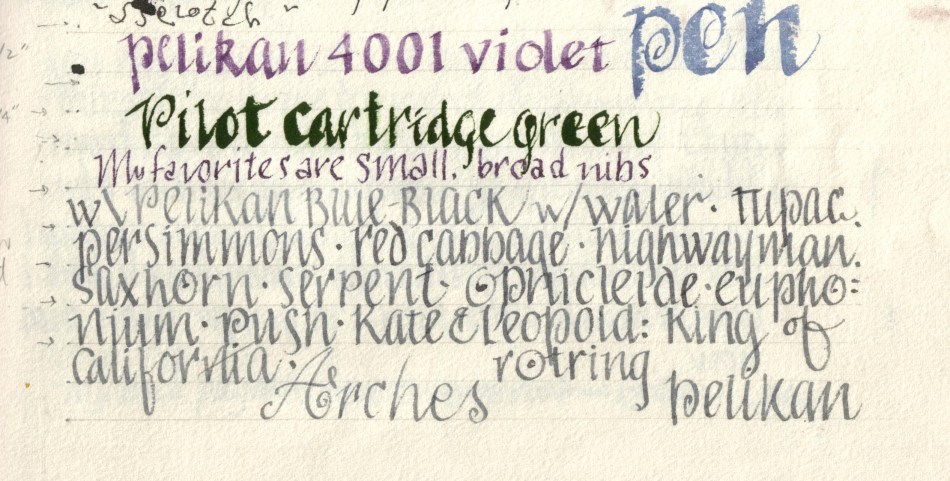 pen
pelikan 4001 violet
Pilot cartridge green
My favorites are small, broad nibs
w\ Pelikan Blue-Black w/ water · Tupac.
persimmons · red cabbage · highwayman.
saxhorn · serpent · Ophicleide · eupho=
nium · push · Kate & Leopold: King of
California ·
Arches
rotring
pelikan